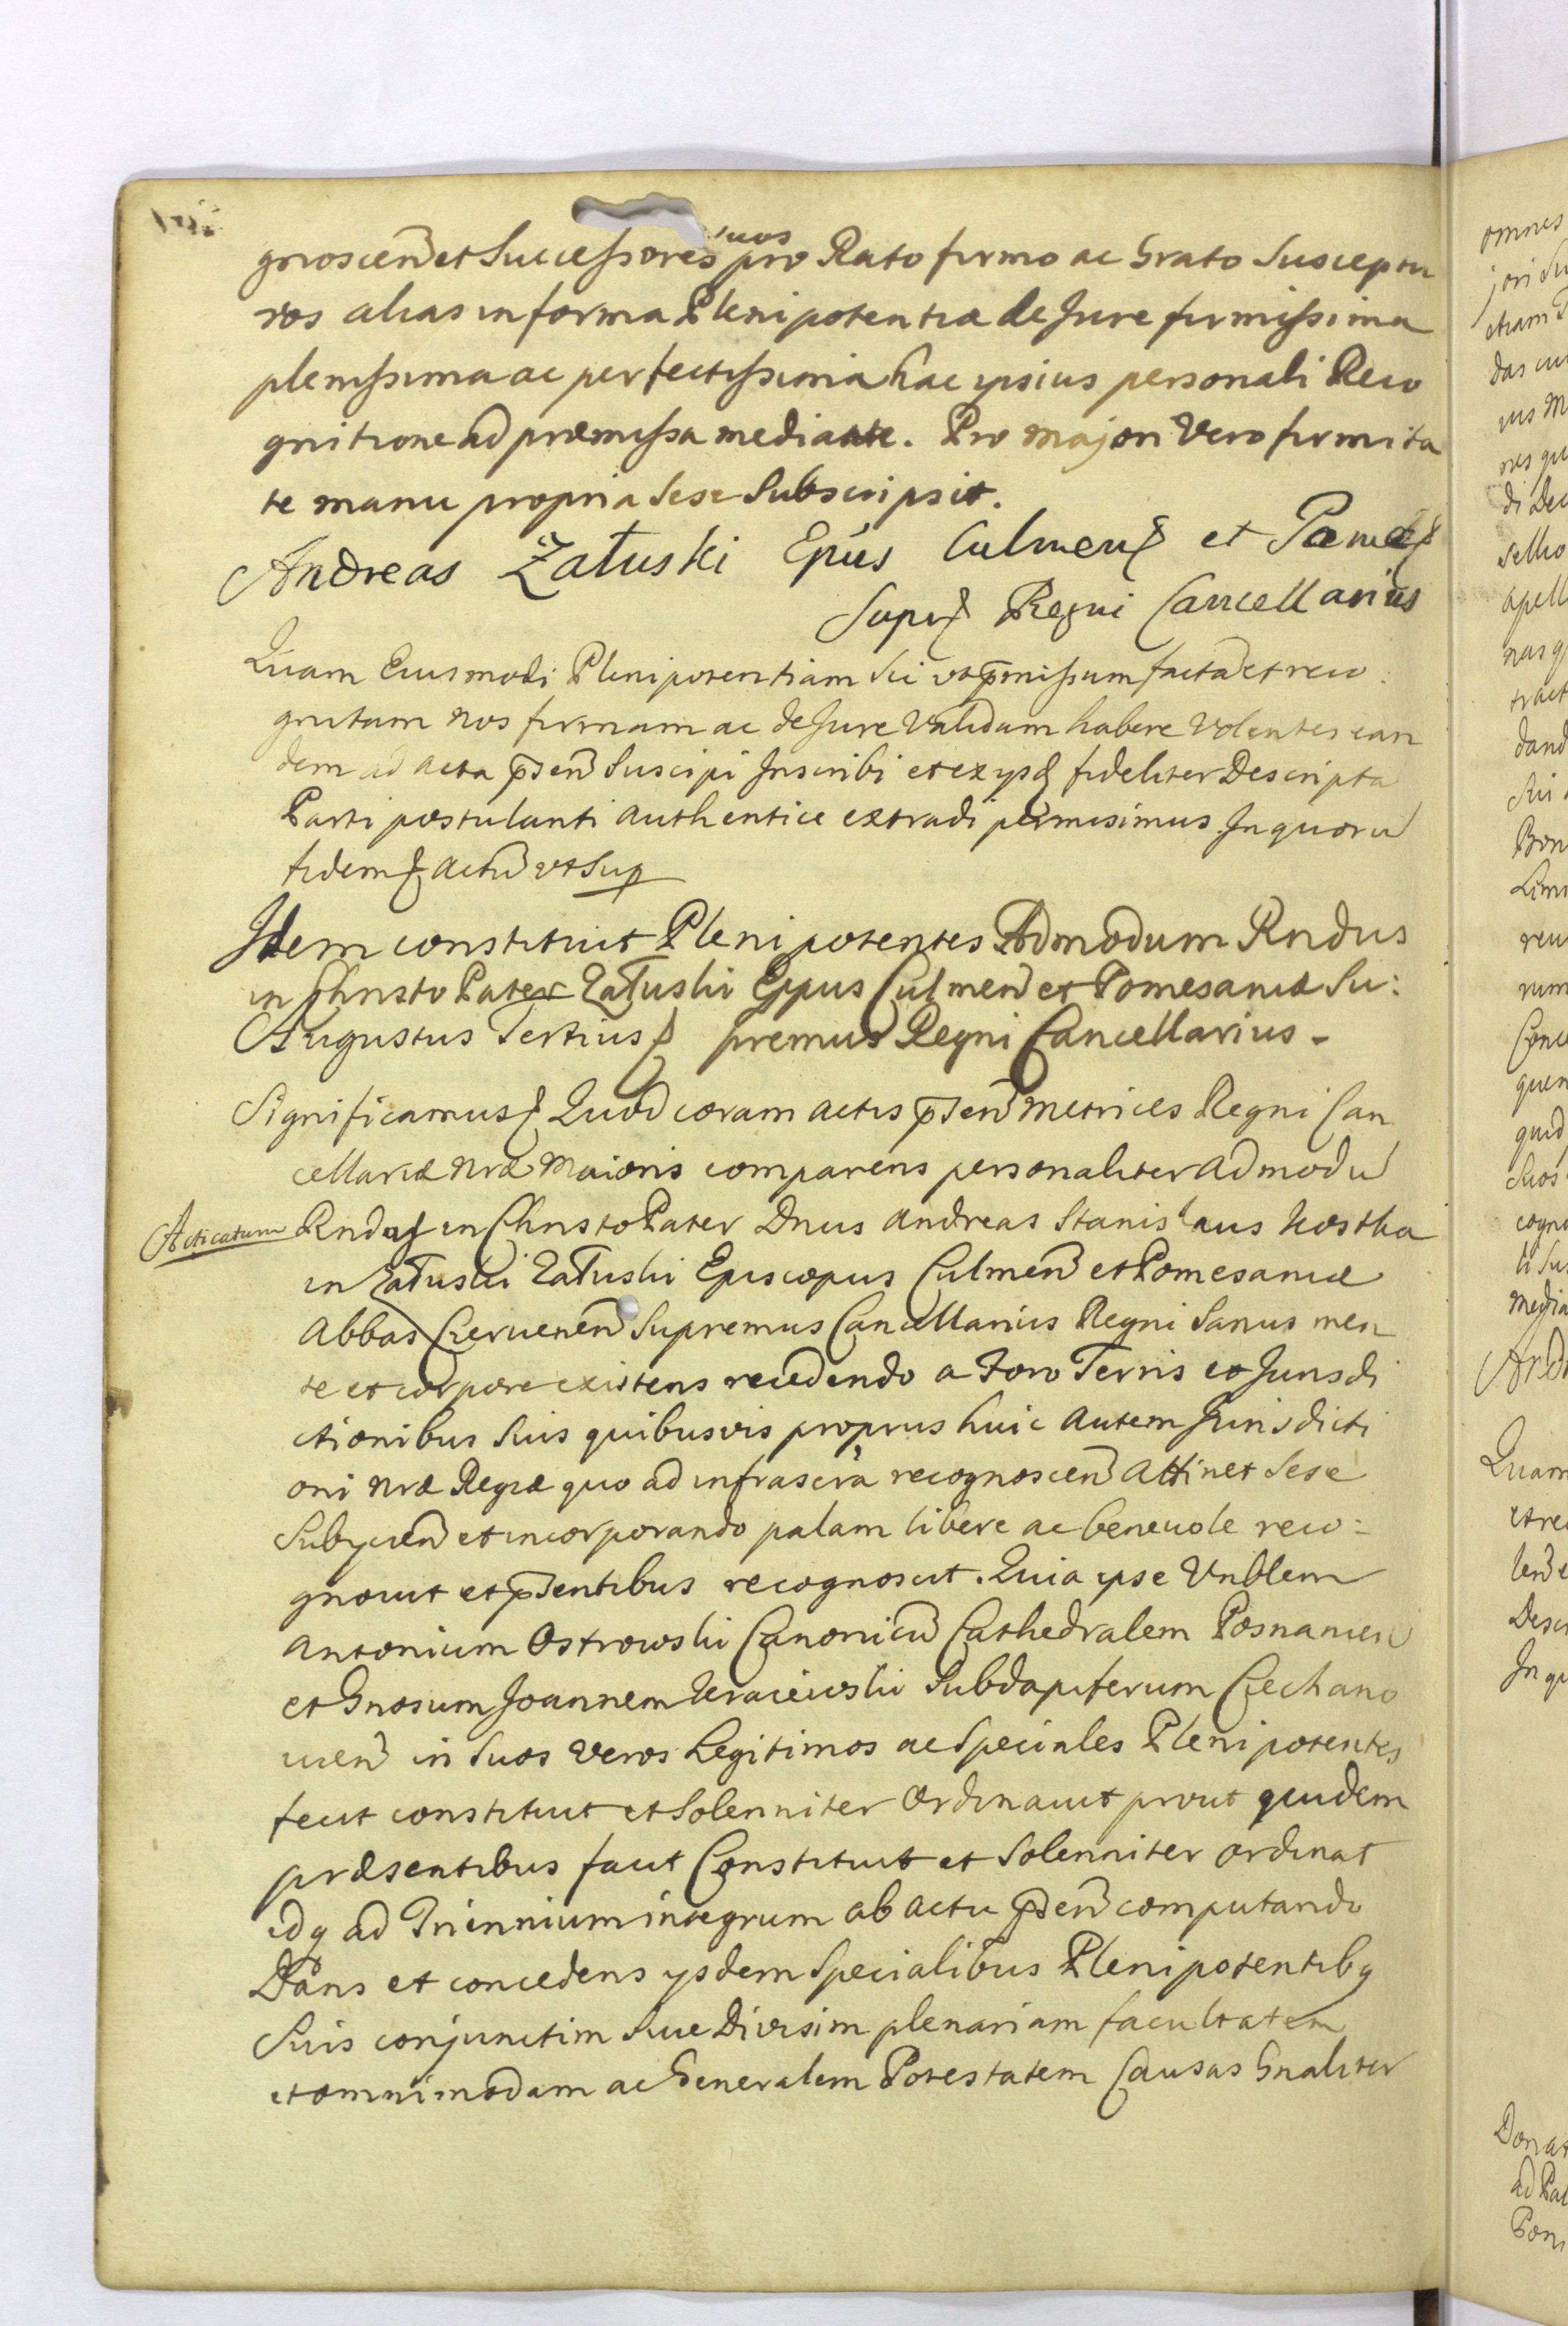 gnoscen et Successores suos pro Rato firmo ac Grato Susceptu
ros alias in forma Plenipotentiæ de Jure firmissima
plenissima ac perfectissima hac ipsius personali Reco
gnitione ad præmissa mediante. Pro majori Vero firmita
te manu propria sese Subscripsit.
Andreas Załuski Epus Culmen et Pomes
Supr Regni Cancellarius
Quam Eiusmodi Plenipotentiam sic ut pmissum facta et reco:
gnitam nos firmam ac de Jure Validam habere Volentes ean
dem ad acta psen Suscipi Inscribi et ex ijsd fideliter Descripta
Parti postulanti authentice extradi permisimus. In quoru
fidem actu ut Sup
Idem constituit Plenipotentes Admodum Rndus
in Christo Pater Załuski Eppus Culmen et Pomesaniæ Su:
Augustus Tertius premus Regni Cancellarius -
Significamus Quod coram actis psen Metrices Regni Can
cellariæ nræ Maioris comparens personaliter admodu
Acticatum
Rndus in Christo Pater Dnus Andreas Stanislaus Kostka
in Załuski Załuski Episcopus Culmen et Pomesaniæ
Abbas Czervenen Supremus Cancellarius Regni Sanus men
te et corpore existens recedendo a Foro Terris et Jurisdi
ctionibus Suis quibusvis proprijs huic autem Jurisdicti
oni nræ Regiæ quo ad infrascra recognoscen Attinet Sese
Subijcien et incorporando palam libere ac benevole reco:
gnovit et psentibus recognoscit. Quia ipse Vnblem
Antonium Ostrowski Canonicu Cathedralem Posnanien
et Gnosum Joannem Kraiewski Subdapiferum Ciechano
uien in Suos Veros Legitimos ac Speciales Plenipotentes
fecit constituit et Solenniter Ordinavit prout quidem
præsentibus facit Constituit et Solenniter ordinat
idq ad Triennium integrum ab actu psen computando
Dans et concedens ijsdem Specialibus Plenipotentibq
Suis conjunctim Sive Divisim plenariam facultatem
et omnimodam ac Generalem Potestatem Causas Gnaliter
omnes
etiam
das
di Dec
apell
nas
tract
dand
Bon
rum
Conc
quen
quid
Suos
cogno
media
Quam
et rec
Desc
In qu
Donat
ad Pal
Pom